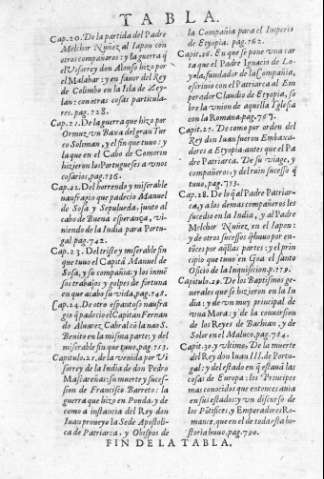 TABLA.
Cap. 20. De la partida del Padre
Melchor Nuñez al Iapon con
otros compañeros: y la guerra q̃
el Visorrey don Alonso hizo por
el Malabar: y en fauor del Rey
de Colimbo en la Isla de Zey-
lan: con otras cosas particula-
res. pag. 728.
Cap. 21. De la guerra que hizo por
Ormuz vn Baxa del gran Tur
co Soleman, y el fin que tuuo: y
la que en el Cabo de Comorin
hizieron los Portugueses a vnos
cosarios, pag. 736.
Cap. 22. Del horrendo y miserable
naufragio que padecio Manuel
de Sosa y Sepulueda, junto al
cabo de Buena esperança, vi-
niendo de la India para Portu-
gal pag. 742.
Cap. 23. Del triste y miserable fin
que tuuo el Capitã Manuel de
Sosa, y su compañia: y los inmẽ
sos trabajos y golpes de fortuna
en que acabo su vida, pag. 748.
Cap. 24. De otro espantoso naufra
gio q̃ padecio el Capitan Fernan
do Aluarez Cabral cõ la nao S.
Benito en la misma parte: y del
miserable fin que tuuo, pag. 753.
Capitulo. 25. de la venida por Vi
sorrey de la India de don Pedro
Mascareñas: su muerte y sucef-
sion de Francisco Barreto: la
guerra que hizo en Ponda, y de
como a instancia del Rey don
Iuan proueyo la Sede Apostoli-
ca de Patriarca, y Obispos de
la Compañia para el Imperio
de Etyopia. pag. 762.
Capit. 26. En que se pone vna car
ta que el Padre Ignacio de Lo-
yola, fundador de la Compañia,
escriuio con el Patriarca al Em
perador Claudio de Etyopia, so
bre la vnion de aquella Iglesia
con la Romana. pag. 767.
Capit. 27. De como por orden del
Rey don Iuan fueron Embaxa-
dores a Etyopia antes que el Pa
dre Patriarca. De su viage, y
compañeros: y del ruin sucesso q̃
tuuo, pag. 773.
Cap. 28. De lo q̃ al Padre Patriar-
ca, y a los demas compañeros les
sucedio en la India, y al Padre
Melchor Nuñez, en el Iapon:
y de otros sucessos q̃ huuo por en-
tõces por aq̃llas partes: y el prin
cipio que tuuo en Goa el santo
Oficio de la Inquisicion. p. 779.
Capitulo. 29. De los Baptismos ge-
nerales que se hizieron en la In
dia: y de vn muy principal de
vna Mora: y de la conuersion
de los Reyes de Bachian, y de
Solor en el Maluco, pag. 784.
Capit. 30. y vltimo. De la muerte
del Rey don Iuan III. de Portu-
gal: y del estado en q̃ estauã las
cosas de Europa: los Principes
mas conocidos que entonces auia
en sus estados: y vn discurso de
los Põtifices, y Emperadores Ro-
manos, que en el de toda esta his-
toria huuo, pag. 790.
FIN DE LA TABLA.